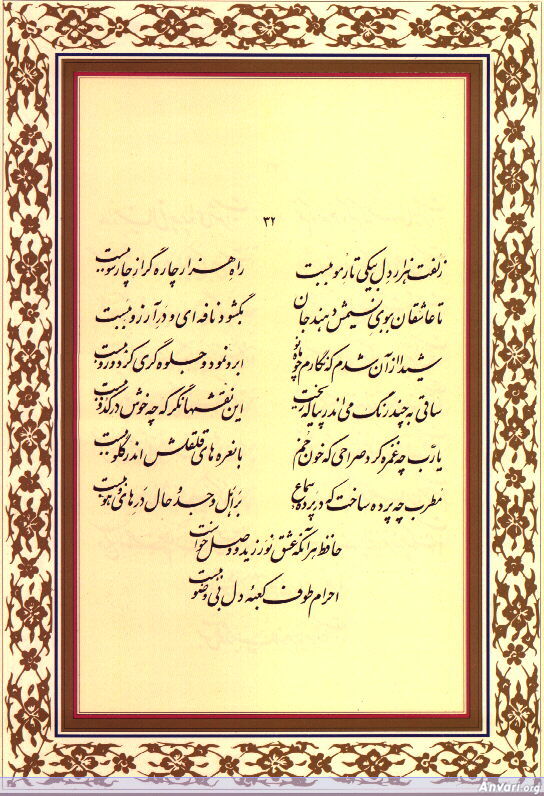 ۳۲
زلفت هزار دل بیکی تار مو ببست راه هزار چاره گر از چار سو ببست
تا عاشقان ببوی نسیمش دهند جان بگشود نافه‌ای و در آرزو ببست
شیدا از آن شدم که نگارم چو ماه نو ابرو نمود و جلوه گری کرد و رو ببست
ساقی به چند رنگ می اندر پیاله ریخت این نقشها نگر که چه خوش در کدو ببست
یا رب چه غمزه کرد صراحی که خون خم با نعره های قلقلش اندر گلو ببست
مطرب چه پرده ساخت که در پرده سماع بر اهل وجد و حال در های و هو ببست
حافظ هر آنکه عشق نورزید و وصل خواست
احرام طوف کعبه دل بی وضو ببست
Anvari.org